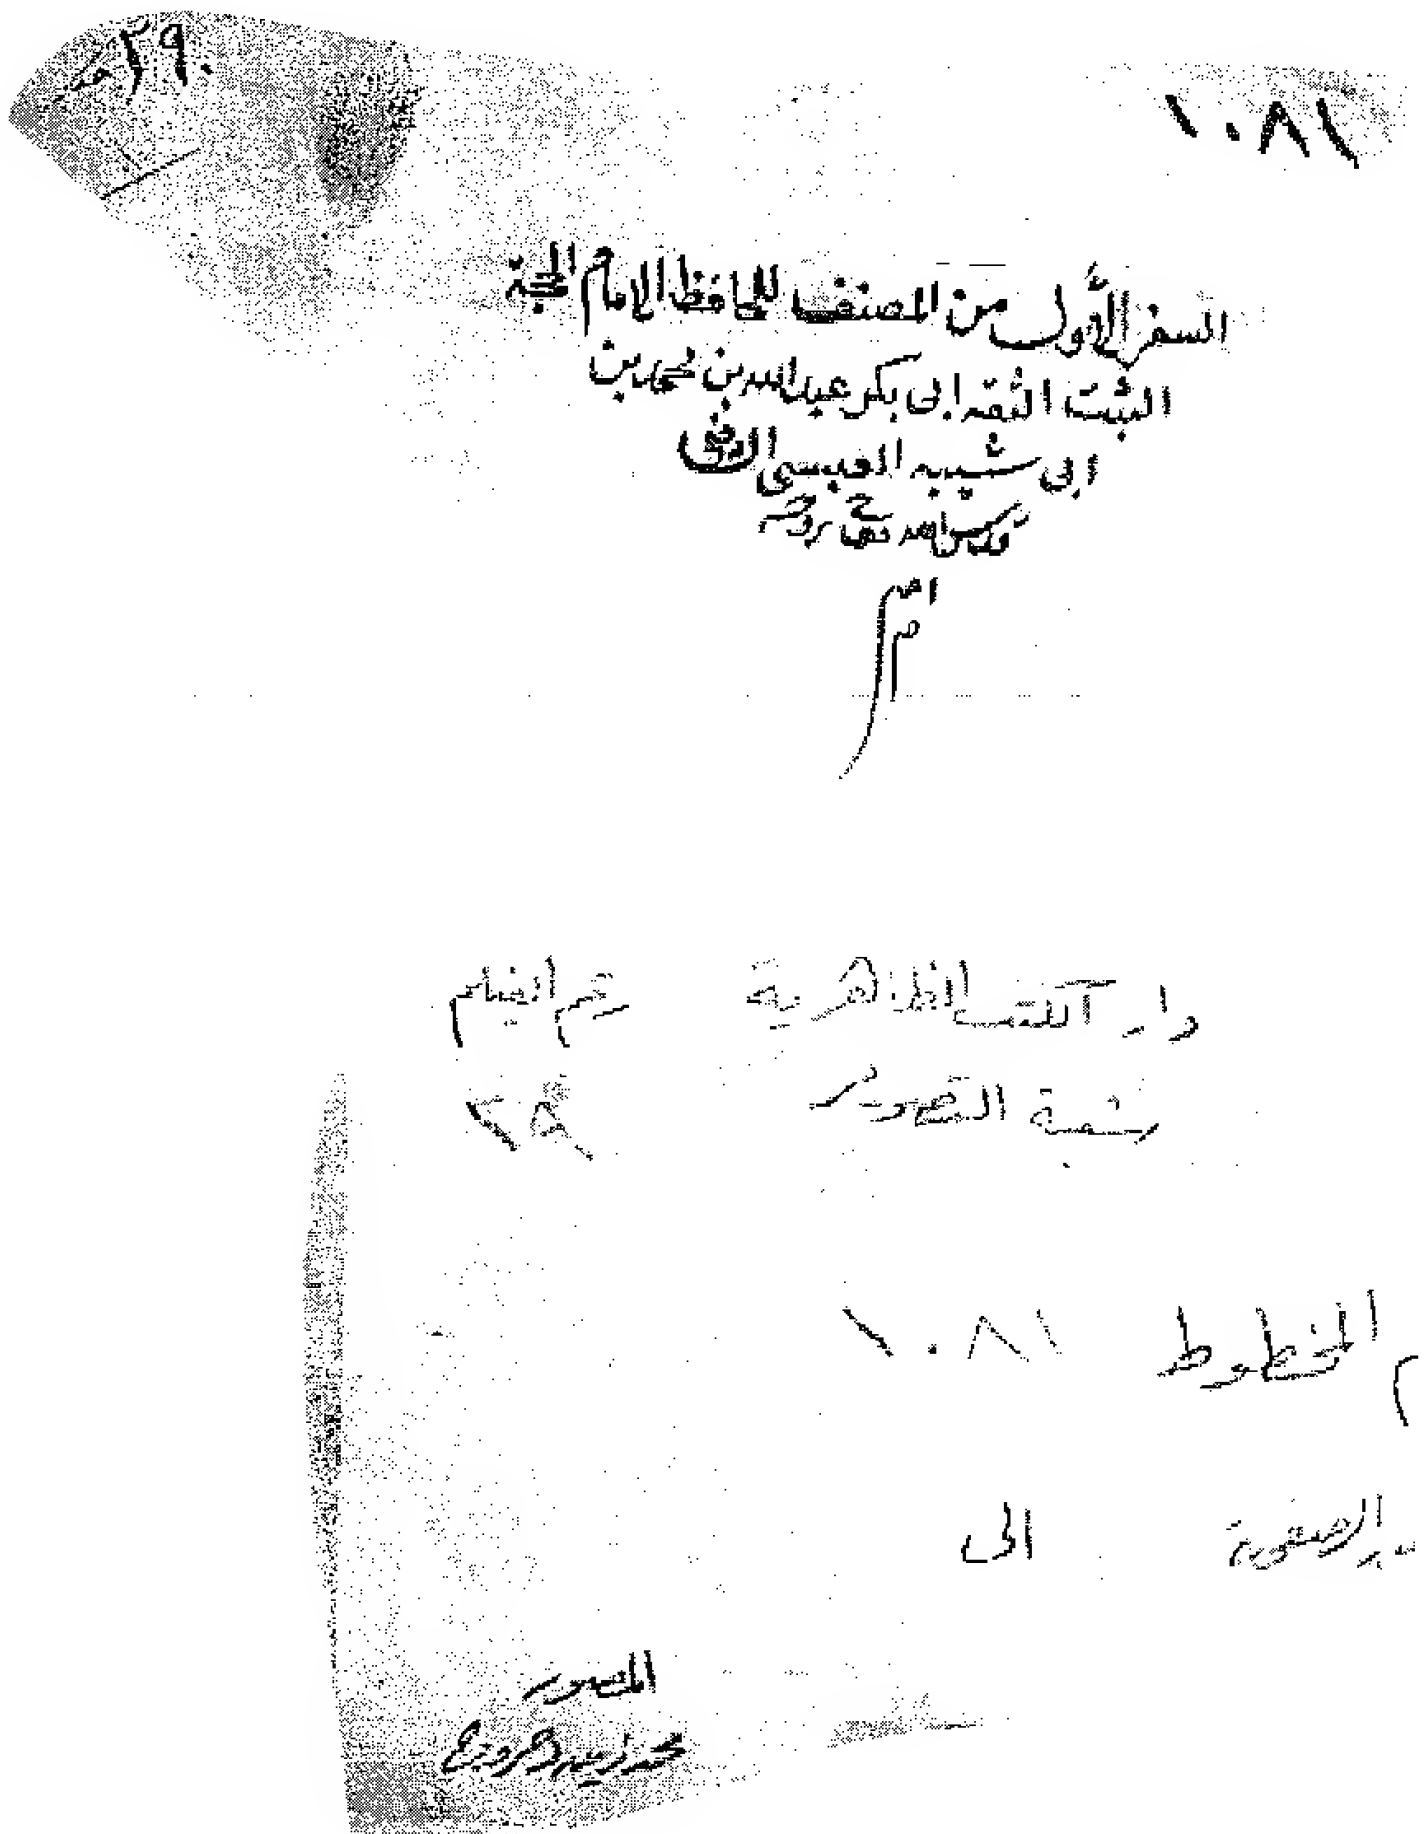 ٢٩٠
١٠٨١
السفر الأول من المصنف للحافظ الامام الحجة
الثبت الثقه ابى بكر عبدالله بن محمد بن
ابى شيبه العبسى الكوفى
قدس الله روحه
امين
دار الكتب الظاهرية رقم الفيلم
شعبة التصوير
م المخطوط ١٠٨١
الصفحة الى
المصور
محمد